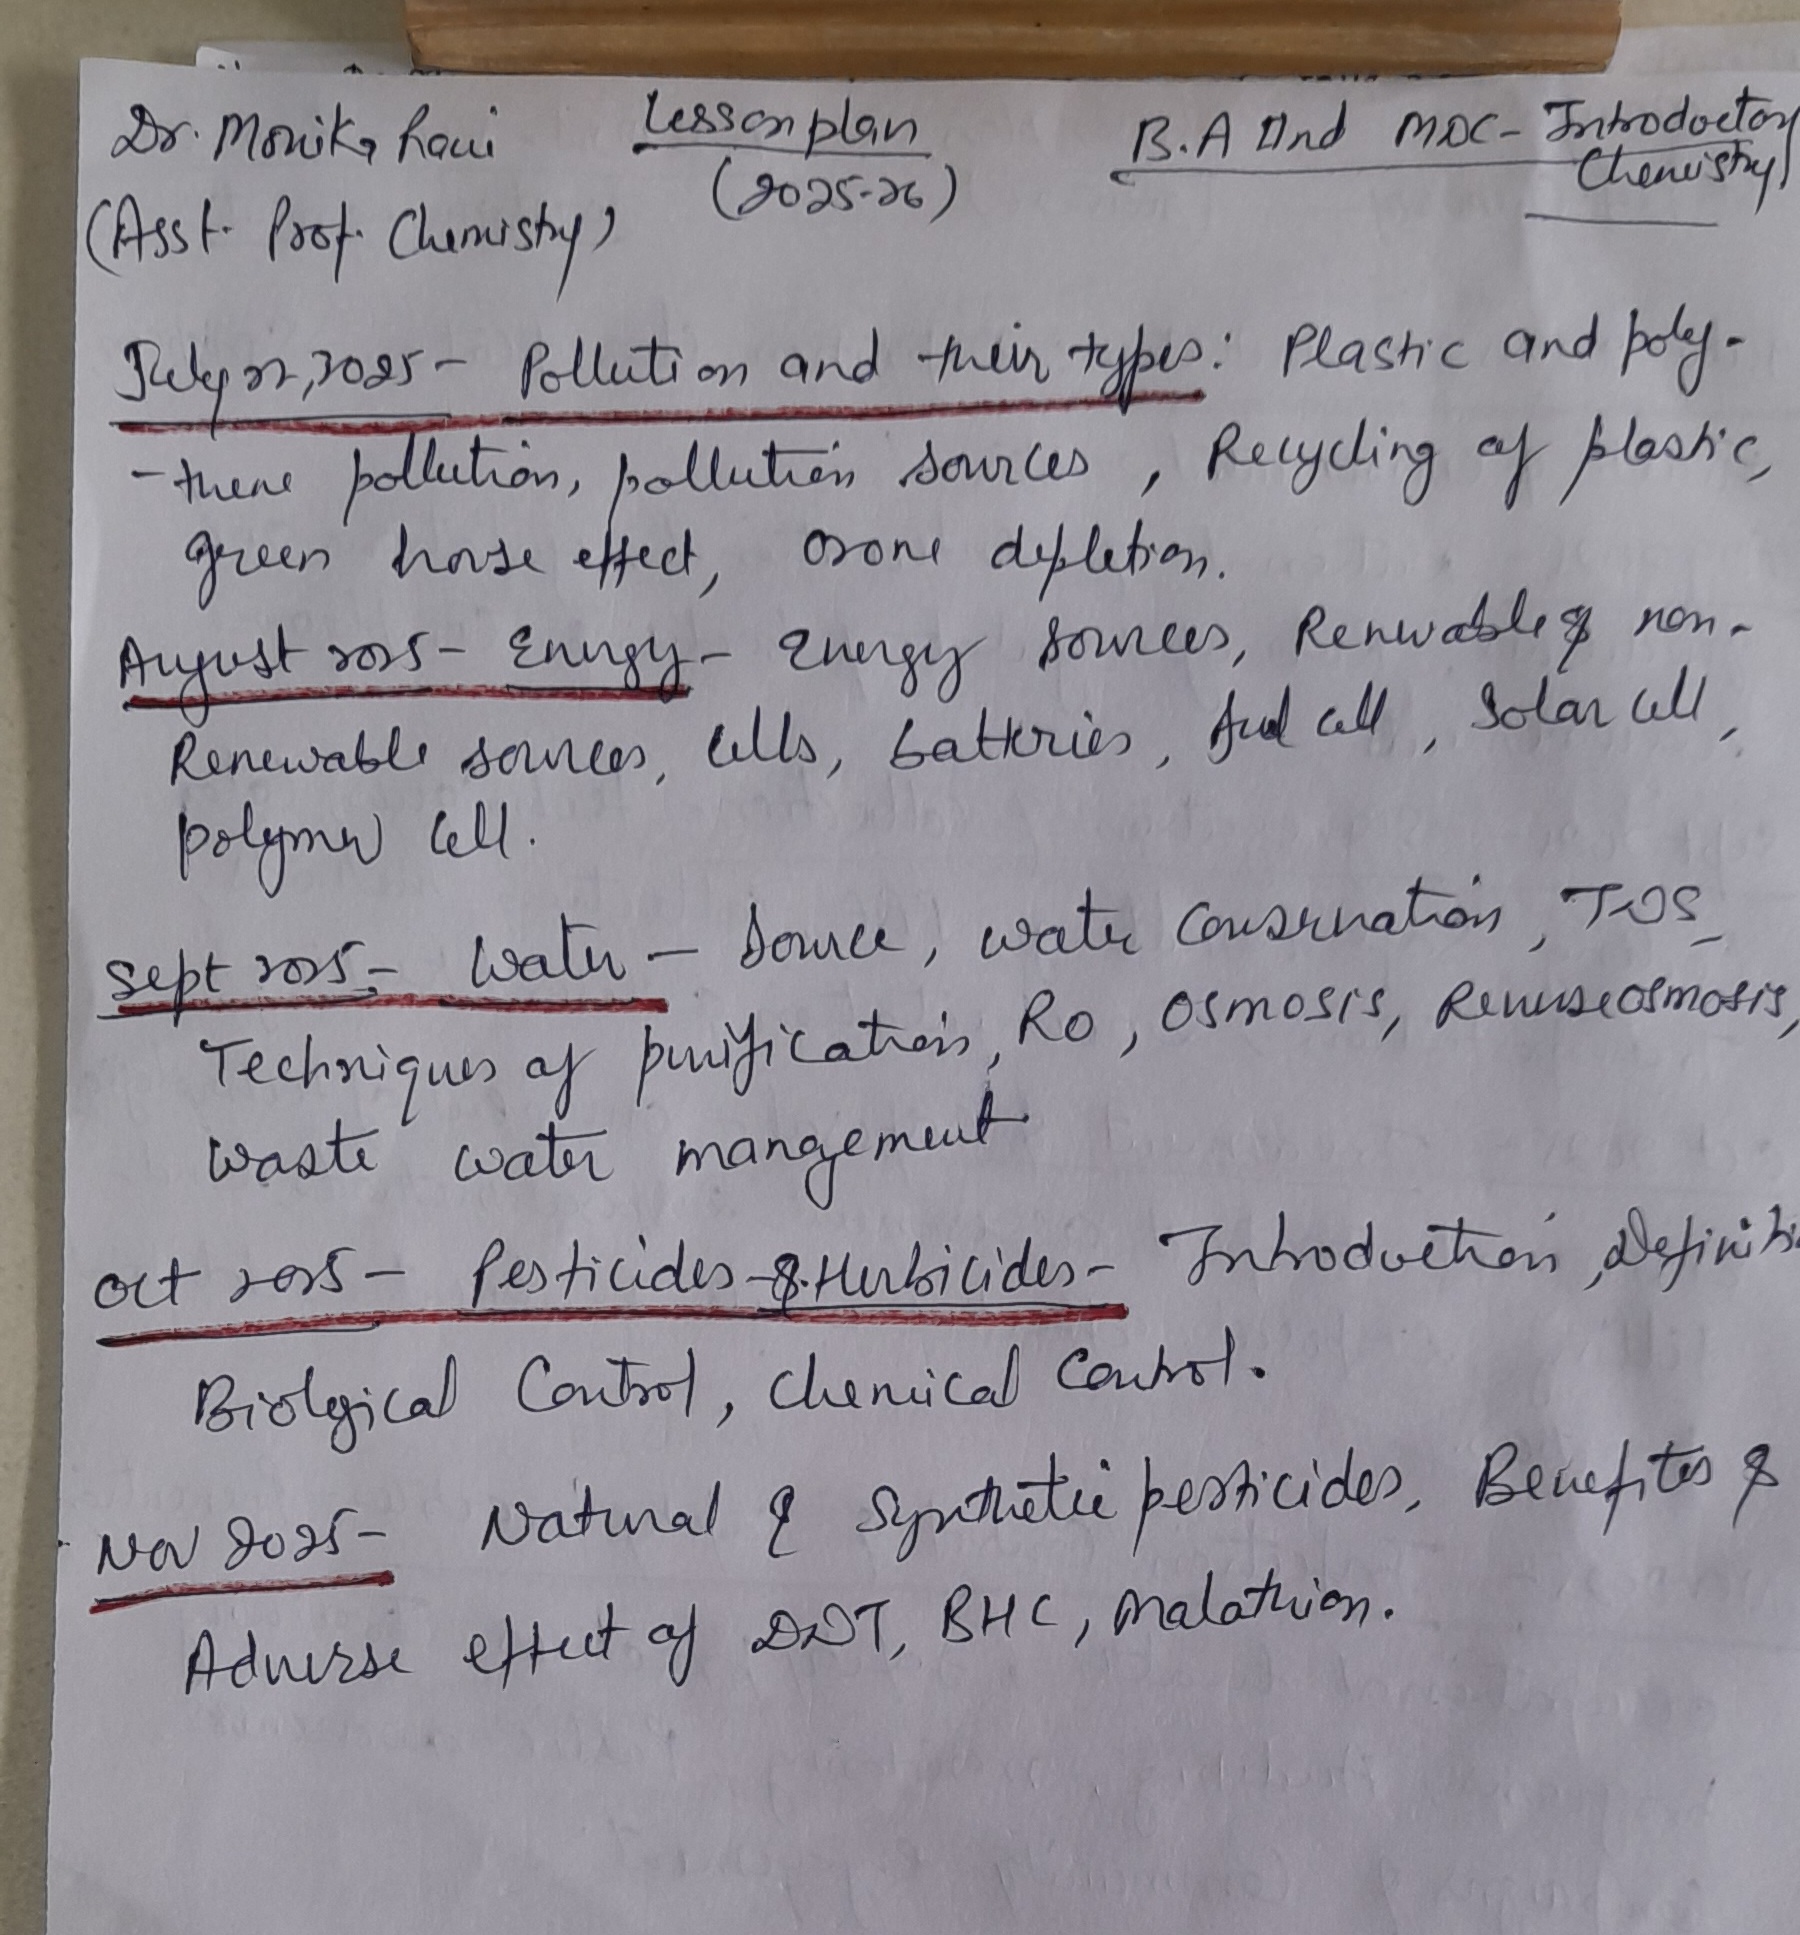 Dr. Monika Rani Lesson plan B.A IInd MDC- Introductory
(2025-26) Chemistry
(Asst. Prof. Chemistry)
July 22, 2025 - Pollution and their types: Plastic and poly-
-thene pollution, pollution sources, Recycling of plastic,
green house effect, ozone depletion.
August 2025 - Energy - Energy sources, Renwable & non-
Renewable sources, Cells, batteries, fuel cell, Solar cell,
polymer cell.
Sept 2025 - Water - Source, water conservation, TDS,
Techniques of purification, RO, OSMOSIS, Reverse osmosis,
waste water mangement
Oct 2025 - Pesticides & Herbicides - Introduction, Definiti
Biological Control, Chemical Control.
Nov 2025 - Natural & Synthetic pesticides, Benefites &
Adverse effect of DDT, BHC, Malathion.